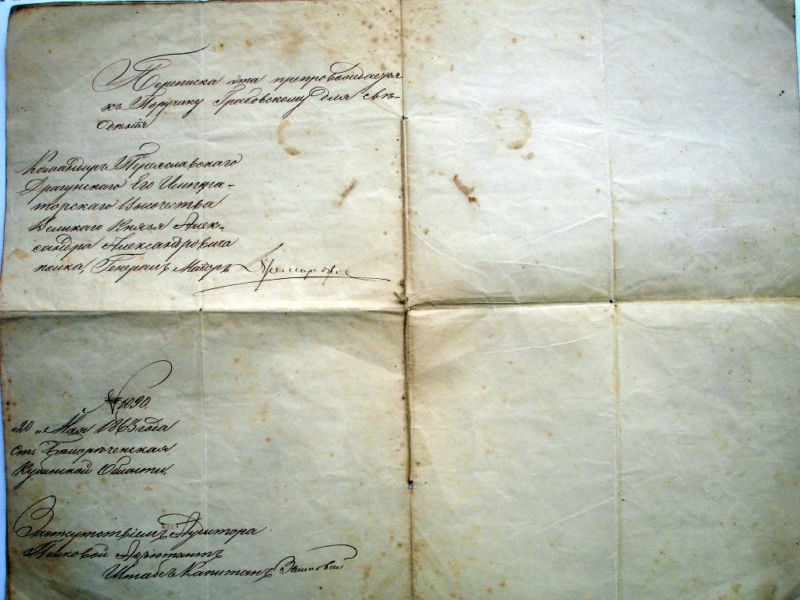 Переписка эта препровождается
къ Поручику Грабовскому для свѣ-
дѣнія
Командиръ Переяславскаго
Драгунскаго Его Импера-
торскаго Высочества
Великаго Князя Алек-
сандра Александровича
полка, Генералъ Маіоръ
№ 1090.
"20" Мая 1863 года
Ст. Бѣлорѣченская
Кубанской Области.
За отсутствіемъ Аудитора
Полковой Адъютантъ
Штабсъ Капитанъ